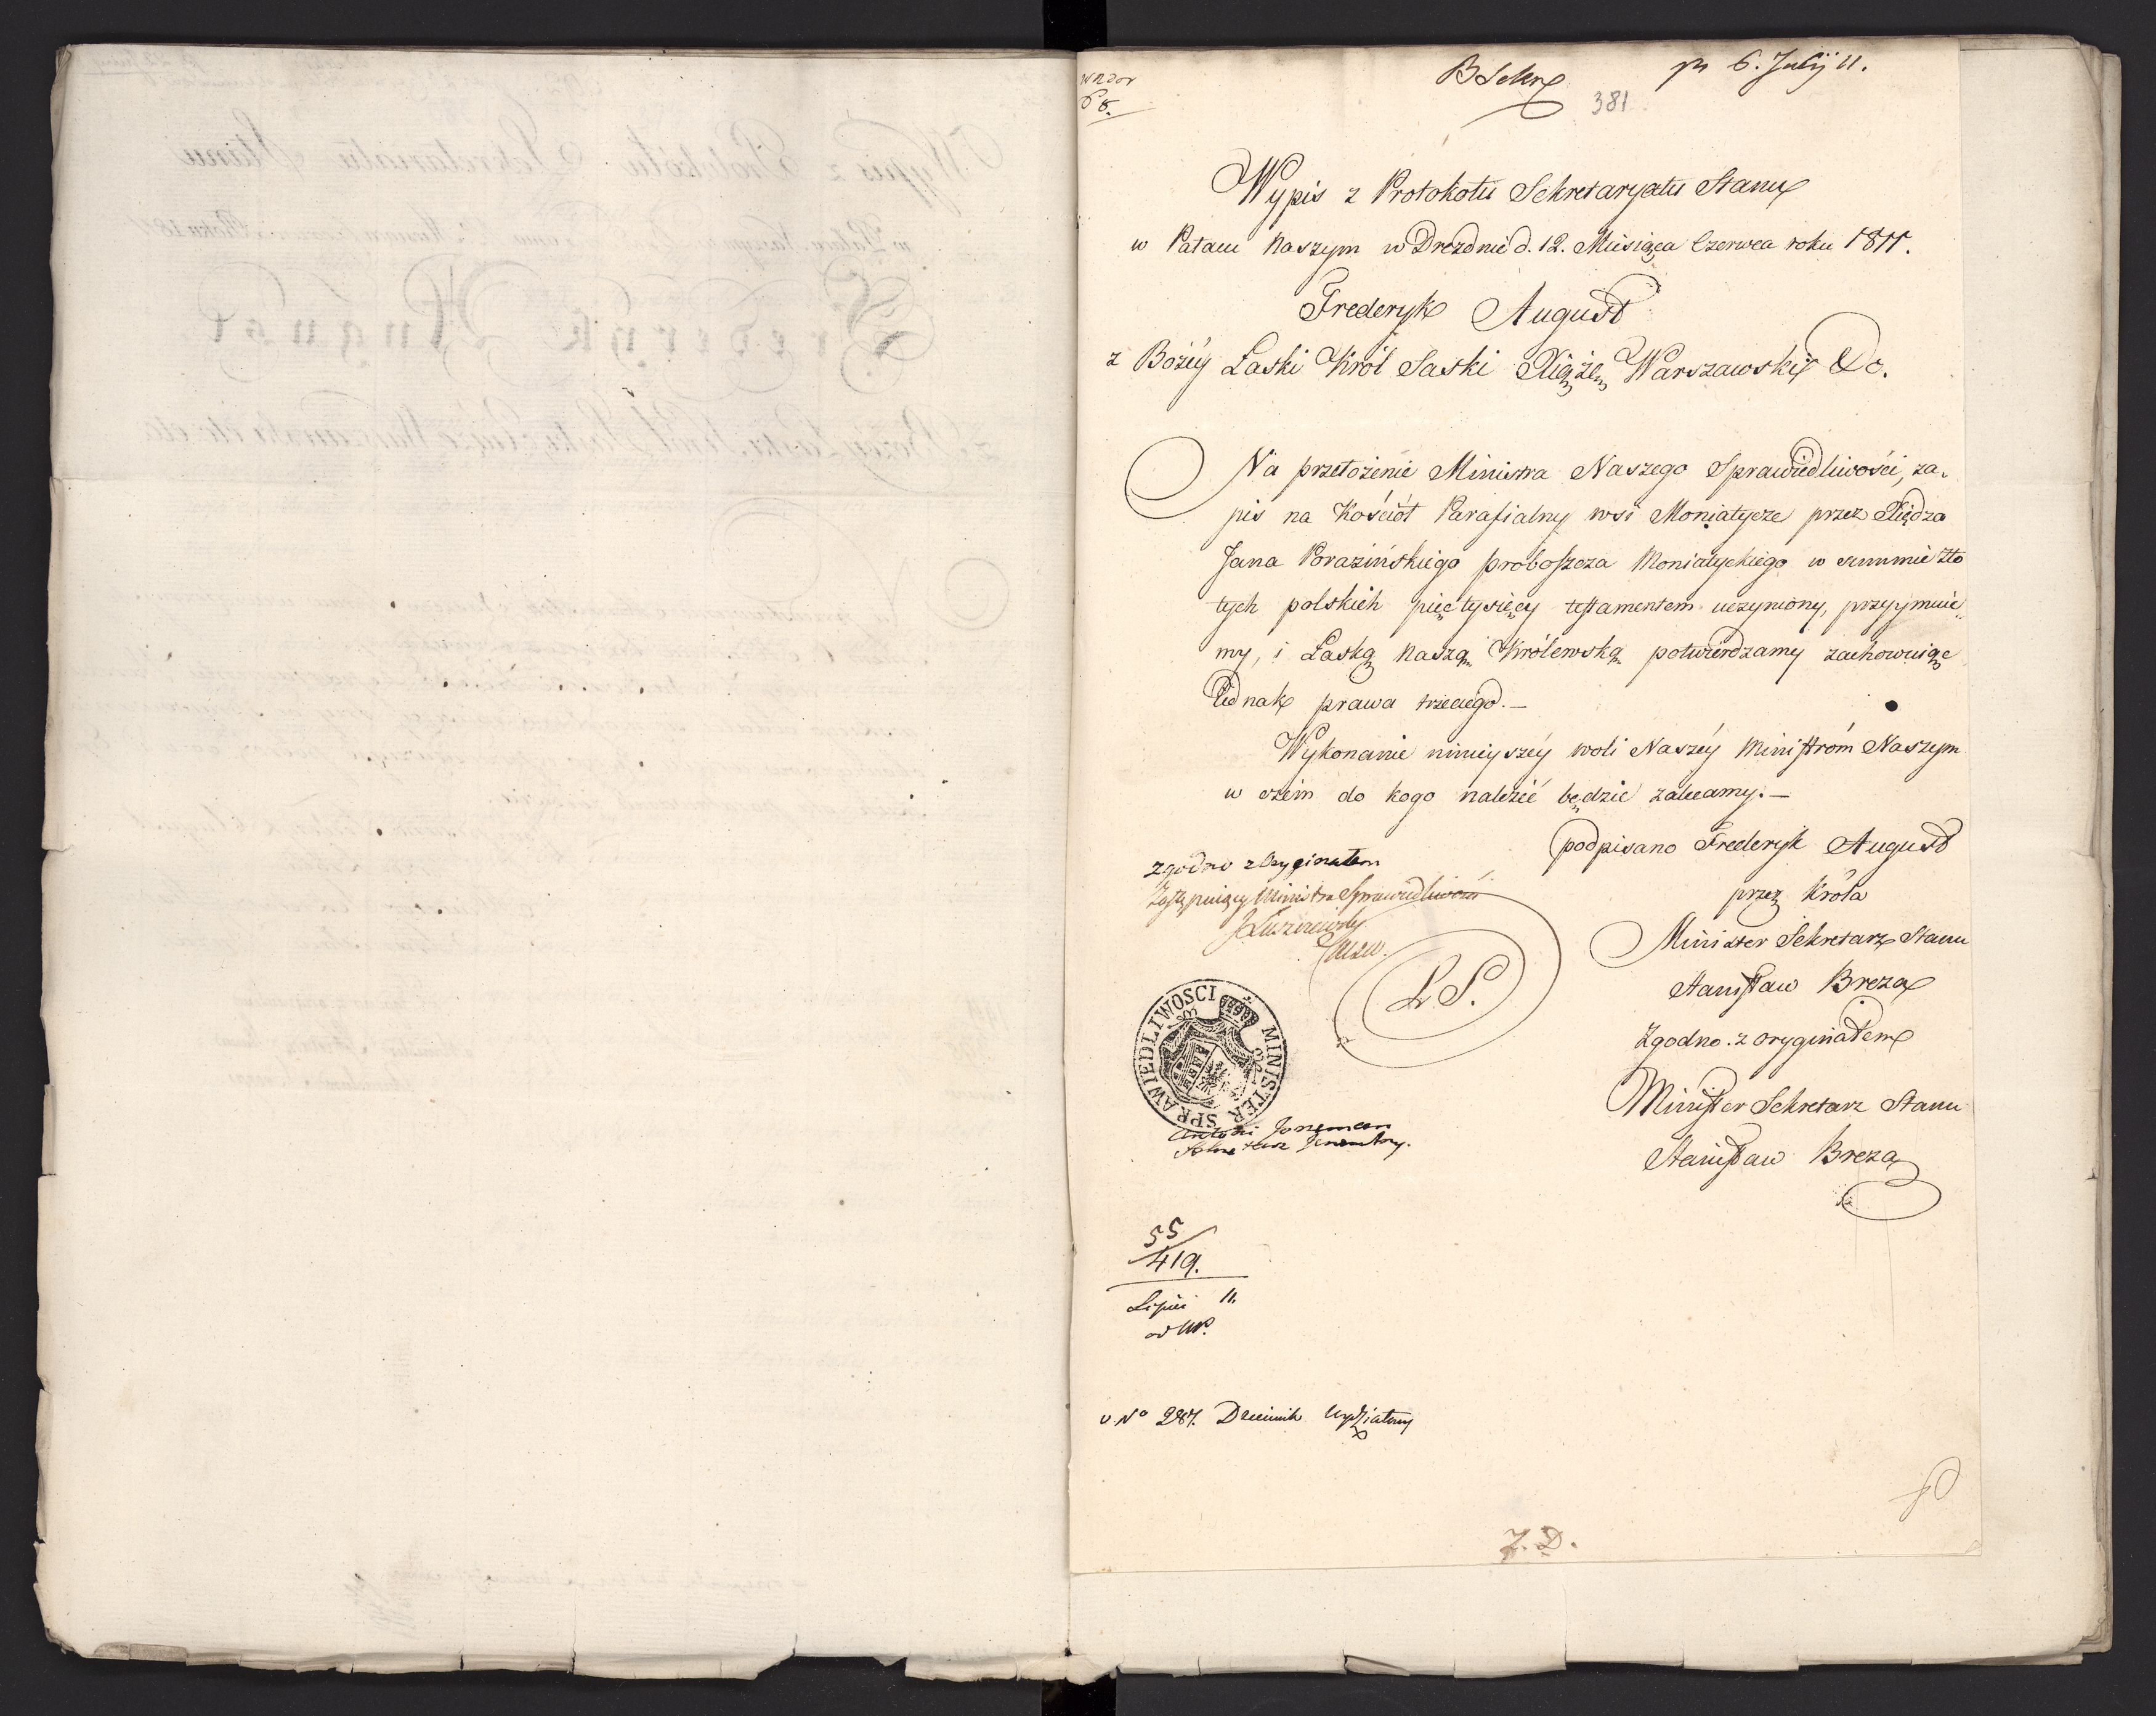 pr 6. Julij 11.
381
Wypis z Protokołu Sekretaryatu Stanu
w Pałacu Naszym w Dreznie d. 12. Miesiąca Czerwca roku 1811.
Frederyk August
z Bożey Łaski Król Saski Xiąże Warszawski &c.
Na przełożenie Ministra Naszego Sprawiedliwości, za-
pis na Kościół Parafialny wsi Moniatycze przez Xiędza
Jana Porazińskiego proboszcza Moniatyckiego w summie Zło
tych polskich pięć tysięcy testamentem uczyniony, przyymuie
my, i Łaską Naszą Królewską potwierdzamy zachowuiąc
Jednak prawa trzeciego. —
Wykonanie ninieyszéy woli Naszéy Ministróm Naszym
w czém do kogo należéć będzie zalecamy. —
podpisano Frederyk August
przez Króla
Minister Sekretarz Stanu
Stanisław Breza
Zgodno z oryginałem
Minister Sekretarz Stanu
Stanisław Breza
zgodno z Oryginałem
Zastępuiący Ministra Sprawiedliwości
L S.
MINISTER SPRAWIEDLIWOSCI
Antoni
Sekretarz Generalny.
55/419.
Lipiec 11.
v. No 287. Dziennik
Z. D.